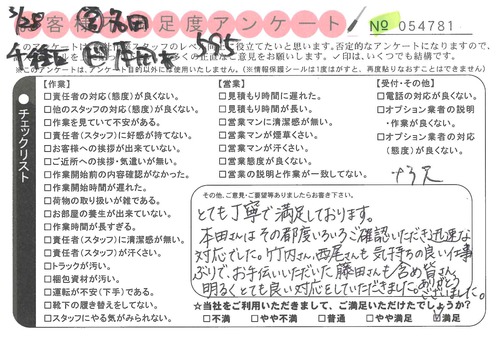 3/28
お客様満足度アンケート
No 054781
595
【作業】
□責任者の対応(態度)が良くない。
□他のスタッフの対応(態度)が良くない。
□作業を見ていて不安がある。
□責任者(スタッフ)に好感が持てない。
□お客様への挨拶が出来ていない。
□ご近所への挨拶・気遣いが無い。
□作業開始前の内容確認がなかった。
□作業開始時間が遅れた。
□荷物の取り扱いが雑である。
□お部屋の養生が出来ていない。
□作業時間が長すぎる。
□責任者(スタッフ)に清潔感が無い。
□責任者(スタッフ)が汗くさい。
□トラックが汚い。
□梱包資材が汚い。
□運転が不安(下手)である。
□靴下の履き替えをしてない。
□スタッフにやる気がみられない。
【営業】
□見積もり時間に遅れた。
□見積もり時間が長い。
□営業マンに清潔感が無い。
□営業マンが煙草くさい。
□営業マンが汗くさい。
□営業態度が良くない。
□営業の説明と作業が一致してない。
【受付・その他】
□電話の対応が良くない。
□オプション業者の説明
・作業が良くない。
□オプション業者の対応
(態度)が良くない。
チェックリスト
その他、ご意見・ご要望等ありましたらお書き下さい。
とても丁寧で満足しております。
本田さんはその都度いろいろご確認いただき迅速な
対応でした。竹内さん、西尾さんも気持ちの良い仕事
ぶりで、お手伝いいただいた藤田さんも含め皆さん
明るくとても良い対応をしていただきました。ありがとうございました。
☆当社をご利用いただきまして、ご満足いただけたでしょうか?
□不満 □やや不満 □普通 □やや満足 ☑満足